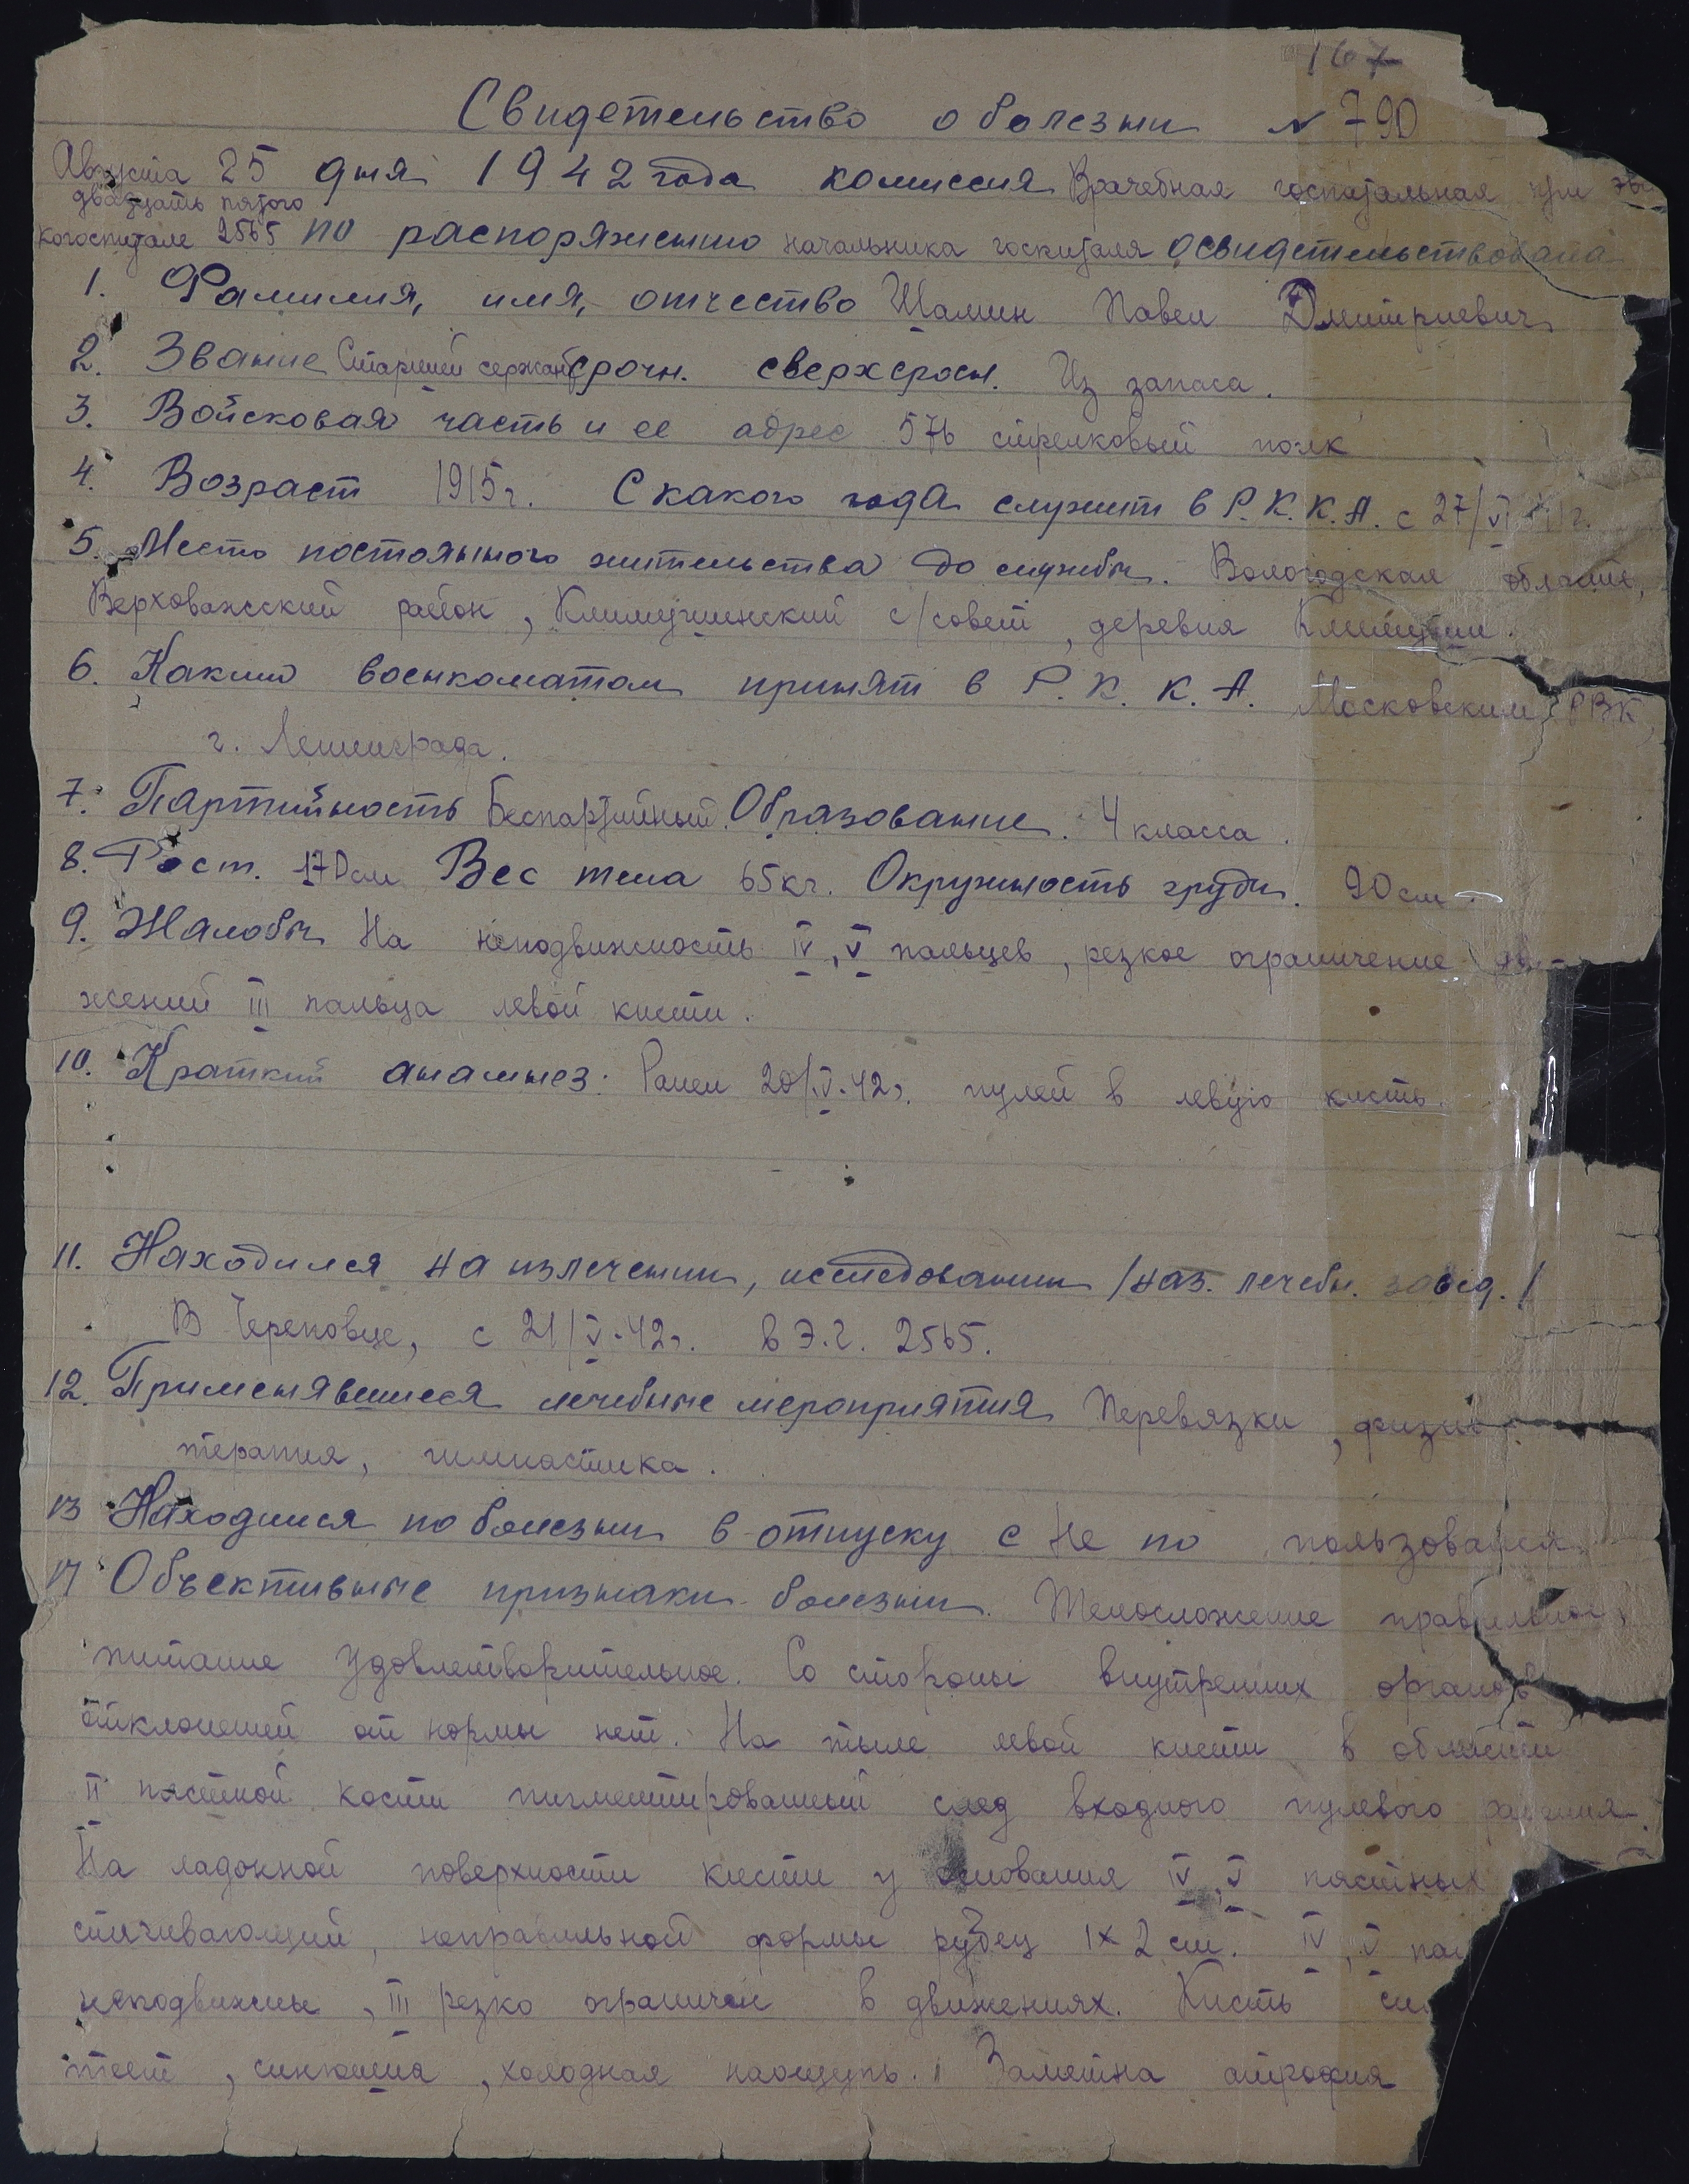 167
Свидетельство о болезни № 790
Августа 25 дня 1942 года комиссия Врачебная госпитальная при эва
двадцать пятого
когоспитале 2565 по распоряжению начальника госпиталя освидетельствована
1. Фамилия, имя, отчество Шамин Павел Дмитриевич
2. Звание Старший сержант срочн. сверхсрочн. Из запаса.
3. Войсковая часть и ее адрес 576 стрелковый полк
4. Возраст 1915 г. С какого года служит в Р.К.К.А. с 27/VI 41 г.
5. Место постоянного жительства до службы. Вологодская область,
Верховажский район, Климушинский с/совет, деревня
6. Каким военкоматом принят в Р.К.К.А. Московским РВК,
г. Ленинграда.
7. Партийность Беспартийный. Образование. 4 класса.
8. Рост. 170 см Вес тела 65 кг. Окружность груди. 90 см.
9. Жалобы На неподвижность IV, V пальцев, резкое ограничение дви-
жений III пальца левой кисти.
10. Краткий анамнез. Ранен 20/V-42 г. пулей в левую кисть.
11. Находился на излечении, исследовании /наз. лечебн. завед./
В Череповце, с 21/V-42 г. в Э.Г. 2565.
12. Применявшиеся лечебные мероприятия Перевязки, физио
терапия, гимнастика.
13 Находился по болезни в отпуску с Не по пользовался
14 Объективные признаки болезни. Телосложение правильное,
питание удовлетворительное. Со стороны внутренних органов
отклонений от нормы нет. На тыле левой кисти в области
II пястной кости пигментированный след входного пулевого ранения.
На ладонной поверхности кисти у основания IV, V пястных
стягивающий, неправильной формы рубец 1×2 см. IV, V пал
неподвижны, III резко ограничен в движениях. Кисть
теет, синюшна, холодная наощупь. Заметна атрофия